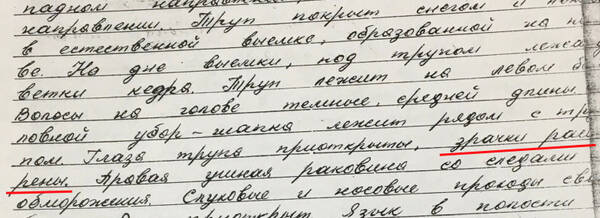 падном направлении
направлении. Труп покрыт снегом и
в естественной выемке, образованной на
ве. На дне выемки, под трупом лежа
ветки кедра. Труп лежит на левом б
Волосы на голове темные, средней длины.
ловной убор - шапка лежит рядом с тру
пом. Глаза трупа приоткрыты, зрачки рас
рены. Правая ушная раковина со следами
обморожения. Слуховые и носовые проходы сво
приоткрыт Язык в полости